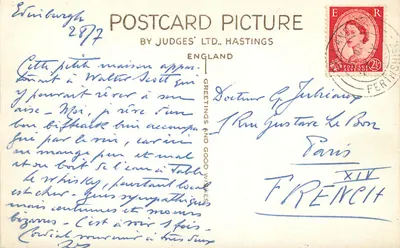 Edinburgh
28/7
POSTCARD PICTURE
BY JUDGES' LTD., HASTINGS
ENGLAND
GREETINGS AND GOOD WISHES
E R
PERTHSHIRE
Cette petite maison appar-
tenait à Walter Scott qui
y pouvait rêver à son
aise - Moi, je rêve d'un
bon bifteack bien accompa-
gné par le vin, car ici
on mange peu et mal
et on boit de l'eau à table
Le whisky, pourtant local
est cher. Gens sympathiques
mais coutumes et moeurs
bizarres - C'est à voir 1 fois -
Cordial souvenir à tous deux
Docteur G
1 Rue Gustave Le Bon
Paris
XIV
FRENCH